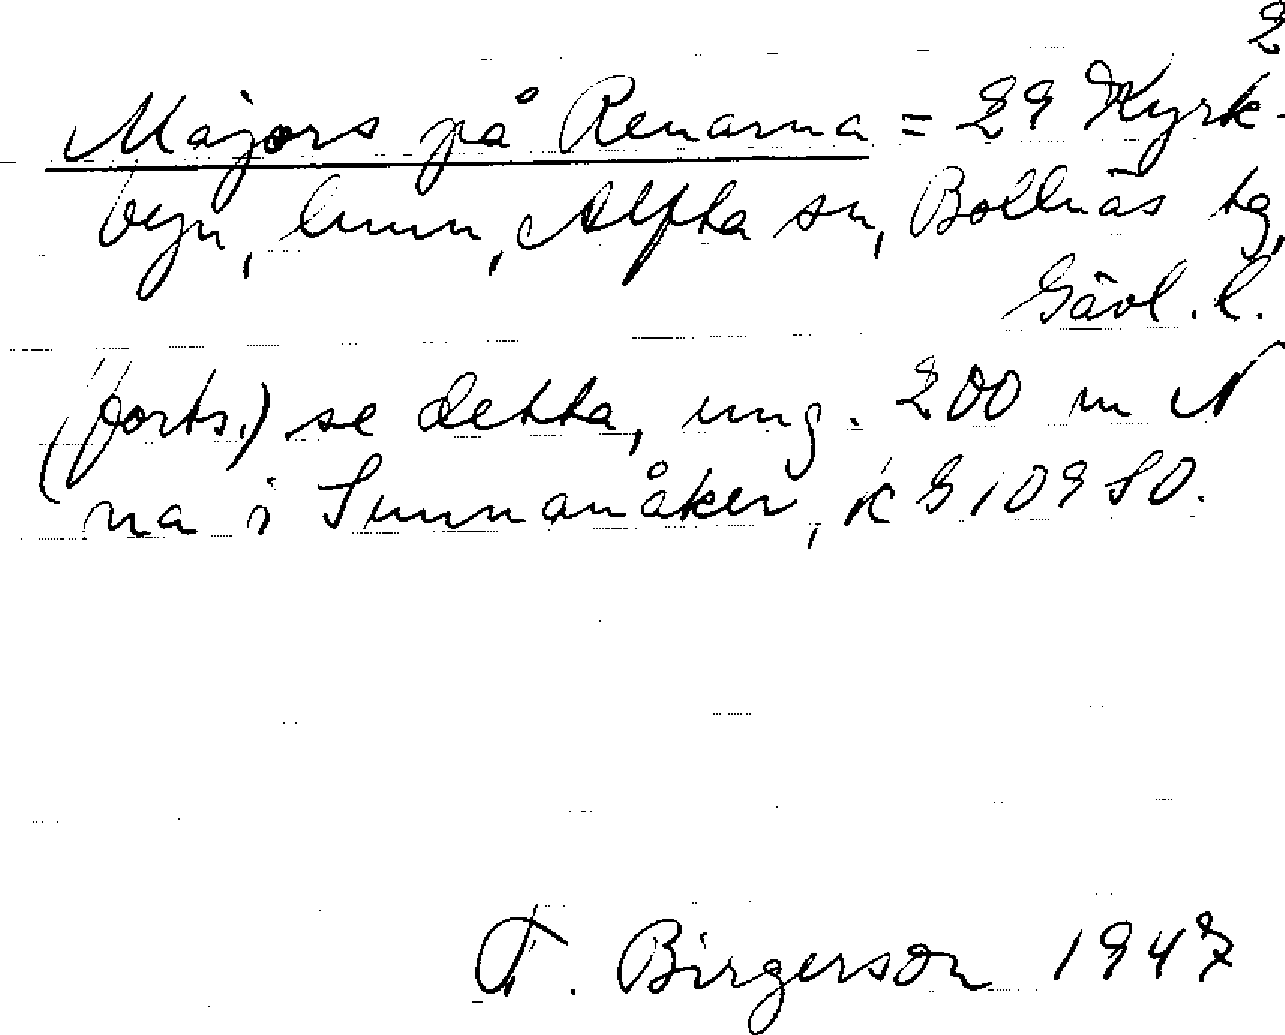 2
Majors på Renarna = 29 Kyrk-
byn, hmn, Alfta sn, Bollnäs tg,
Gävl. l.
(forts.) se detta, ung. 200 m N
na i Sunnanåker, k G 109 SO.
F. Birgerson 1947